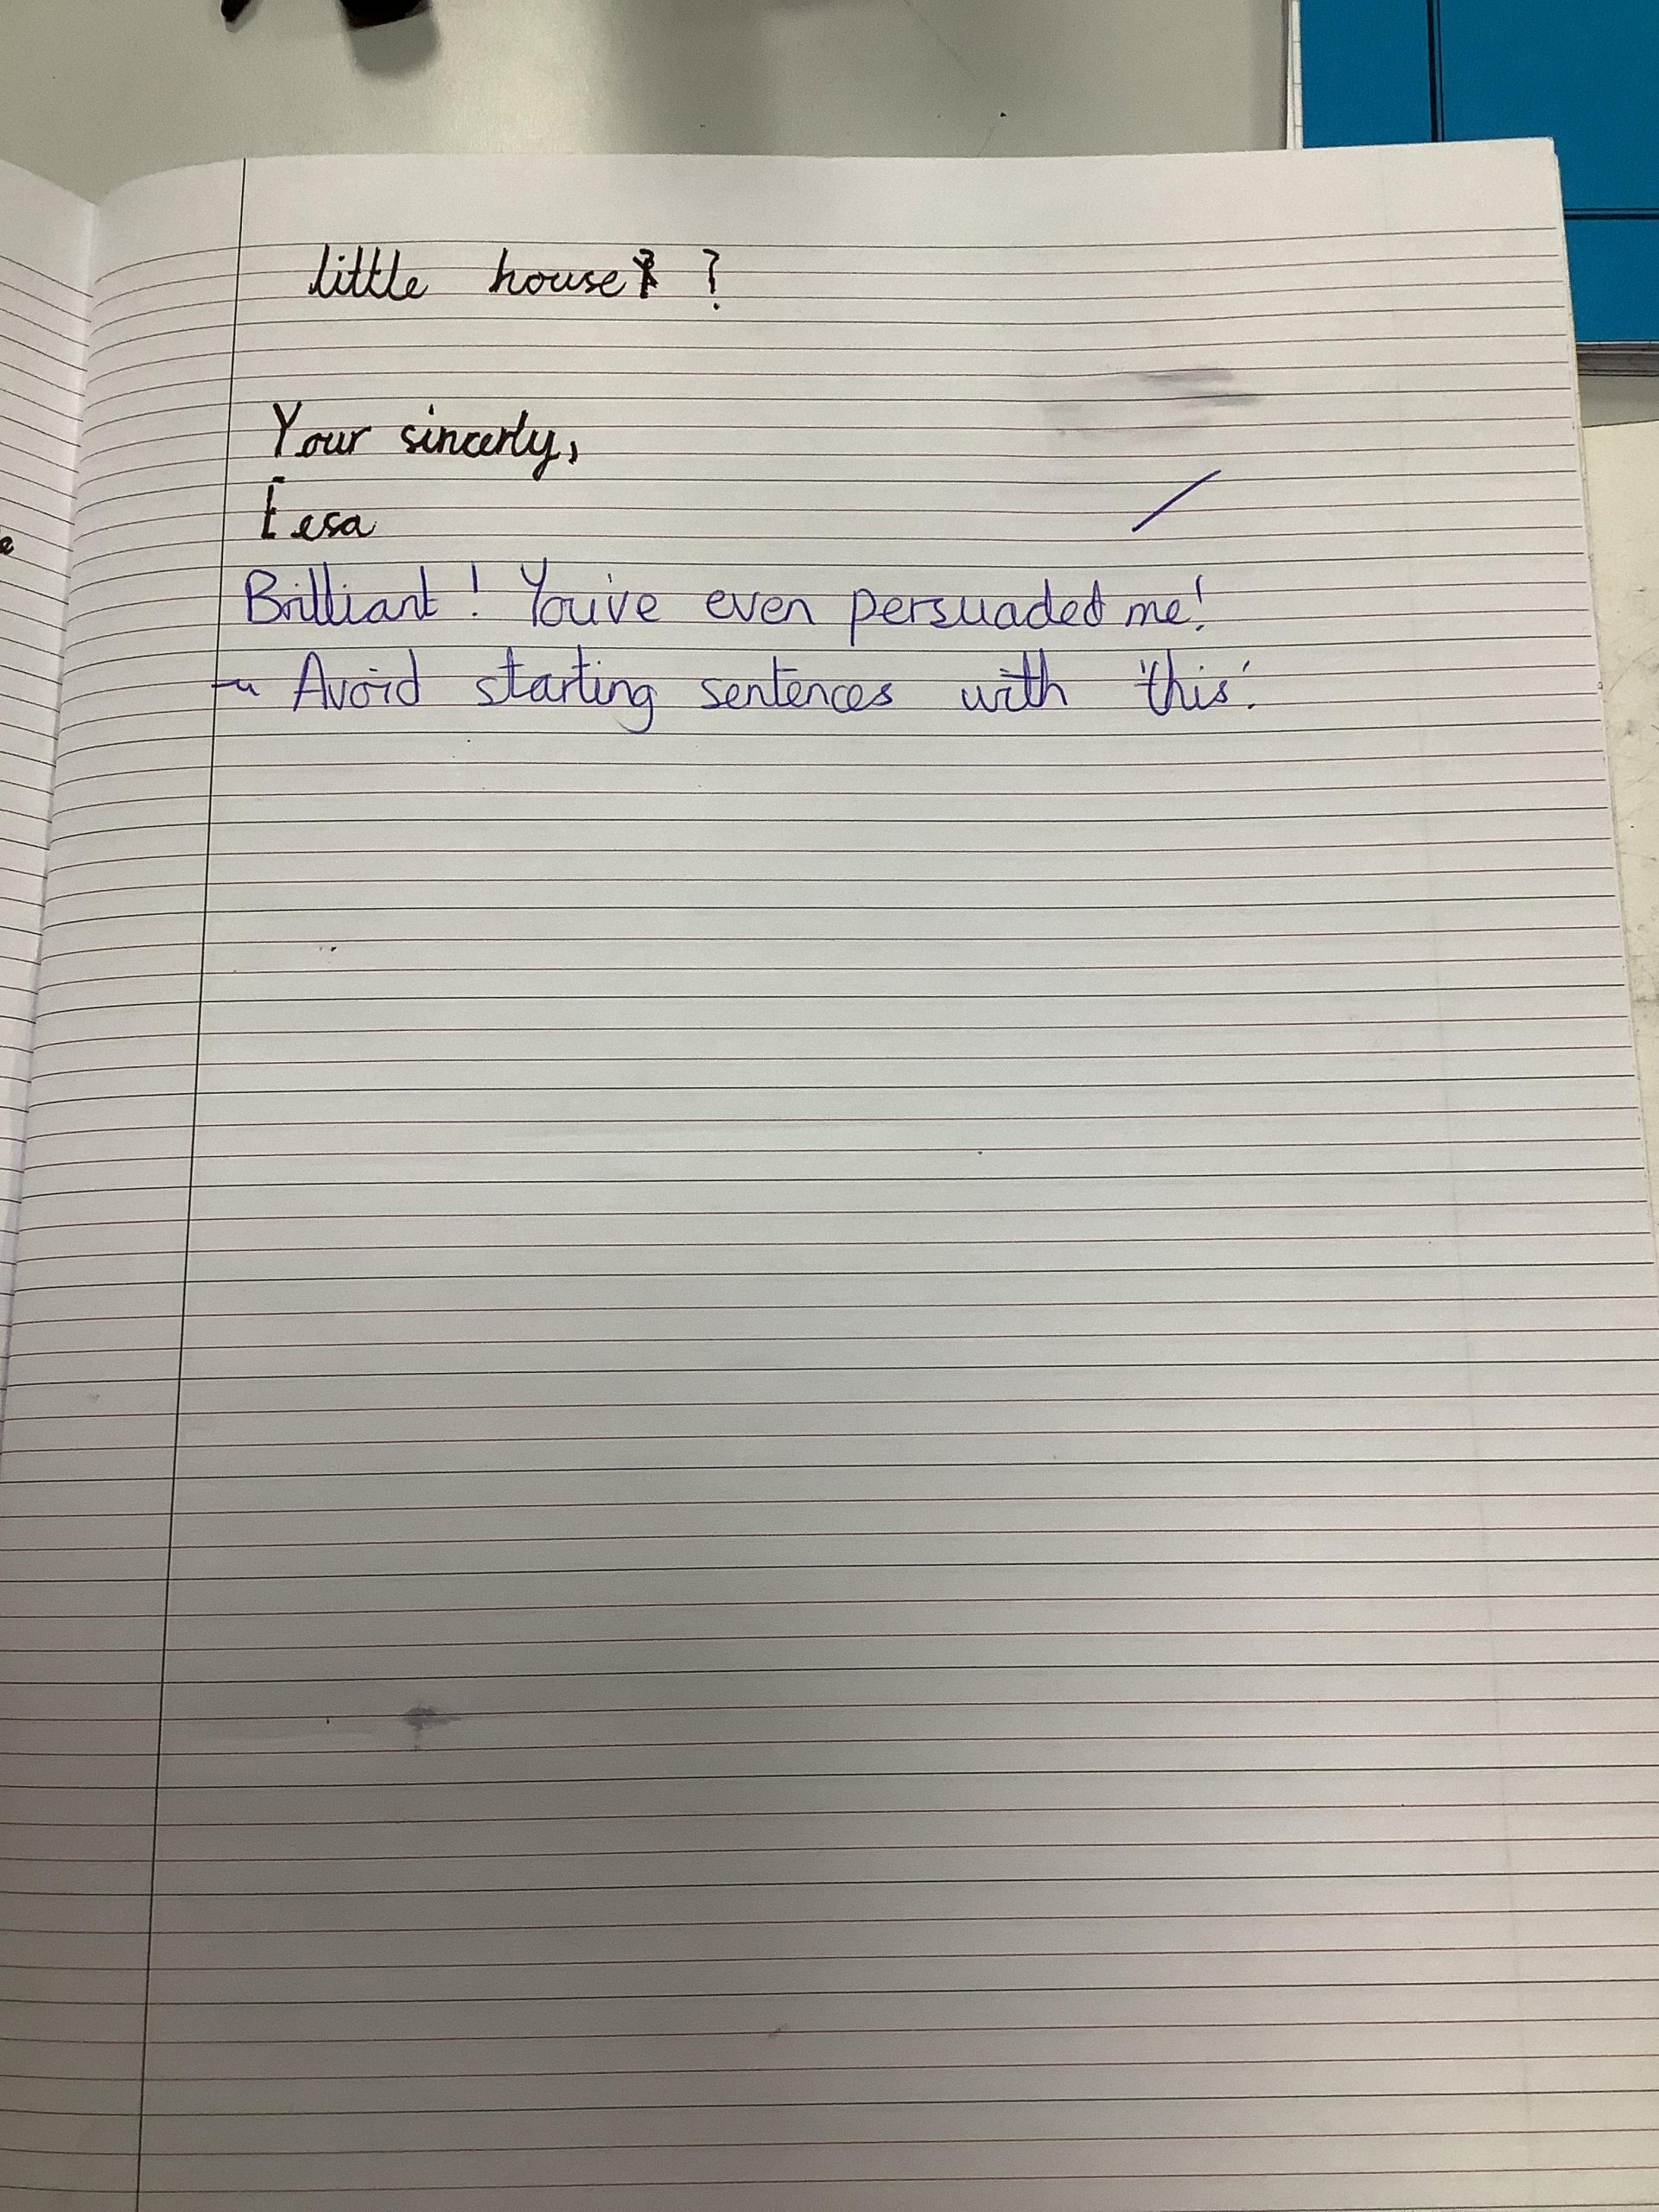 little house ?
Your sincerly,
Eesa
Brilliant! You've even persuaded me!
~ Avoid starting sentences with 'this'.
e